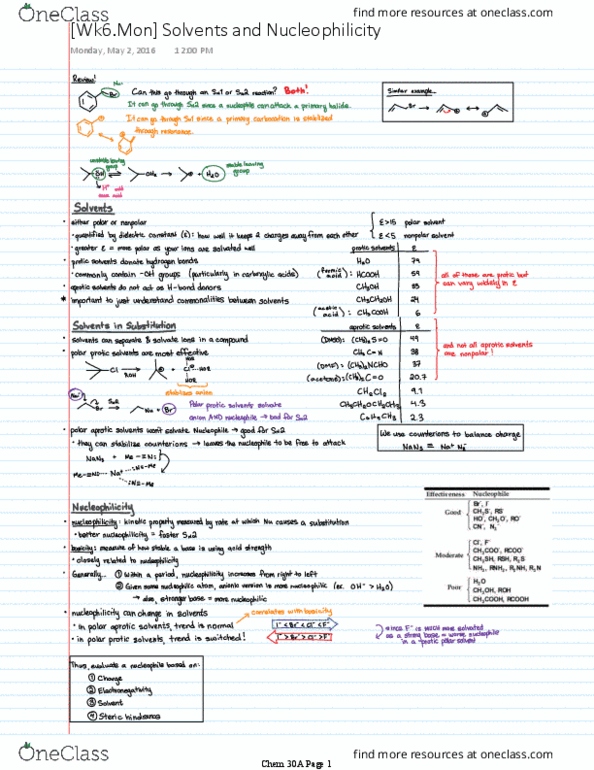 OneClass
find more resources at oneclass.com
[Wk6.Mon] Solvents and Nucleophilicity
Monday, May 2, 2016 12:00 PM
Review!
Nu:
Br
Can this go through an SN1 or SN2 reaction? Both!
It can go through SN2 since a nucleophile can attack a primary halide.
It can go through SN1 since a primary carbocation is stabilized
through resonance.
Similar example...
Br
unstable leaving
group
stable leaving
group
OH
H₂O
Solvents
• either polar or nonpolar
• quantified by dielectric constant (ε): how well it keeps 2 charges away from each other
ε >15 polar solvent
ε <5 nonpolar solvent
• greater ε = more polar as your ions are solvated well
• protic solvents donate hydrogen bonds
• commonly contain -OH groups (particularly in carboxylic acids)
• aprotic solvents do not act as H-bond donors
* important to just understand commonalities between solvents
protic solvents ε
H₂O 79
(formic acid): HCOOH 59
CH₃OH 33
CH₃CH₂OH 24
(acetic acid): CH₃COOH 6
all of these are protic but
can vary widely in ε
Solvents in Substitution
• solvents can separate & solvate ions in a compound
• polar protic solvents are most effective
Cl
ROH
HOR
stabilizes anion
aprotic solvents ε
(DMSO): (CH₃)₂S=O 49
CH₃C≡N 38
(DMF): (CH₃)₂NCHO 37
(acetone): (CH₃)₂C=O 20.7
CH₂Cl₂ 9.1
CH₃CH₂OCH₂CH₃ 4.3
C₆H₅CH₃ 2.3
and not all aprotic solvents
are nonpolar!
Nu:
Br
SN2
Nu + Br
Polar protic solvents solvate
anion AND nucleophile → bad for SN2
• polar aprotic solvents won't solvate Nucleophile → good for SN2
• they can stabilize counterions → leaves the nucleophile to be free to attack
NaN₃ + Me-≡N:
Me-≡N: ... Na⁺ ... :N≡-Me
:N≡-Me
We use counterions to balance charge
NaN₃ = Na⁺ N₃⁻
Nucleophilicity
• nucleophilicity: kinetic property measured by rate at which Nu causes a substitution
• better nucleophilicity = faster SN2
• basicity: measure of how stable a base is using acid strength
• closely related to nucleophilicity
• Generally... ① Within a period, nucleophilicity increases from right to left
② Given same nucleophilic atom, anionic version is more nucleophilic (ex. OH⁻ > H₂O)
→ also, stronger base = more nucleophilic
Effectiveness Nucleophile
Good
Br⁻, I⁻
CH₃S⁻, RS⁻
HO⁻, CH₃O⁻, RO⁻
CN⁻, N₃⁻
Moderate
Cl⁻, F⁻
CH₃COO⁻, RCOO⁻
CH₃SH, RSH, R₂S
NH₃, RNH₂, R₂NH, R₃N
Poor
H₂O
CH₃OH, ROH
CH₃COOH, RCOOH
• nucleophilicity can change in solvents
correlates with basicity
• in polar aprotic solvents, trend is normal
I⁻ < Br⁻ < Cl⁻ < F⁻
• in polar protic solvents, trend is switched!
I⁻ > Br⁻ > Cl⁻ > F⁻
since F⁻ is MUCH more solvated
as a strong base = worse nucleophile
in a protic polar solvent
Thus, evaluate a nucleophile based on:
① Charge
② Electronegativity
③ Solvent
④ Steric hindrance
OneClass
find more resources at oneclass.com
Chem 30A Page 1